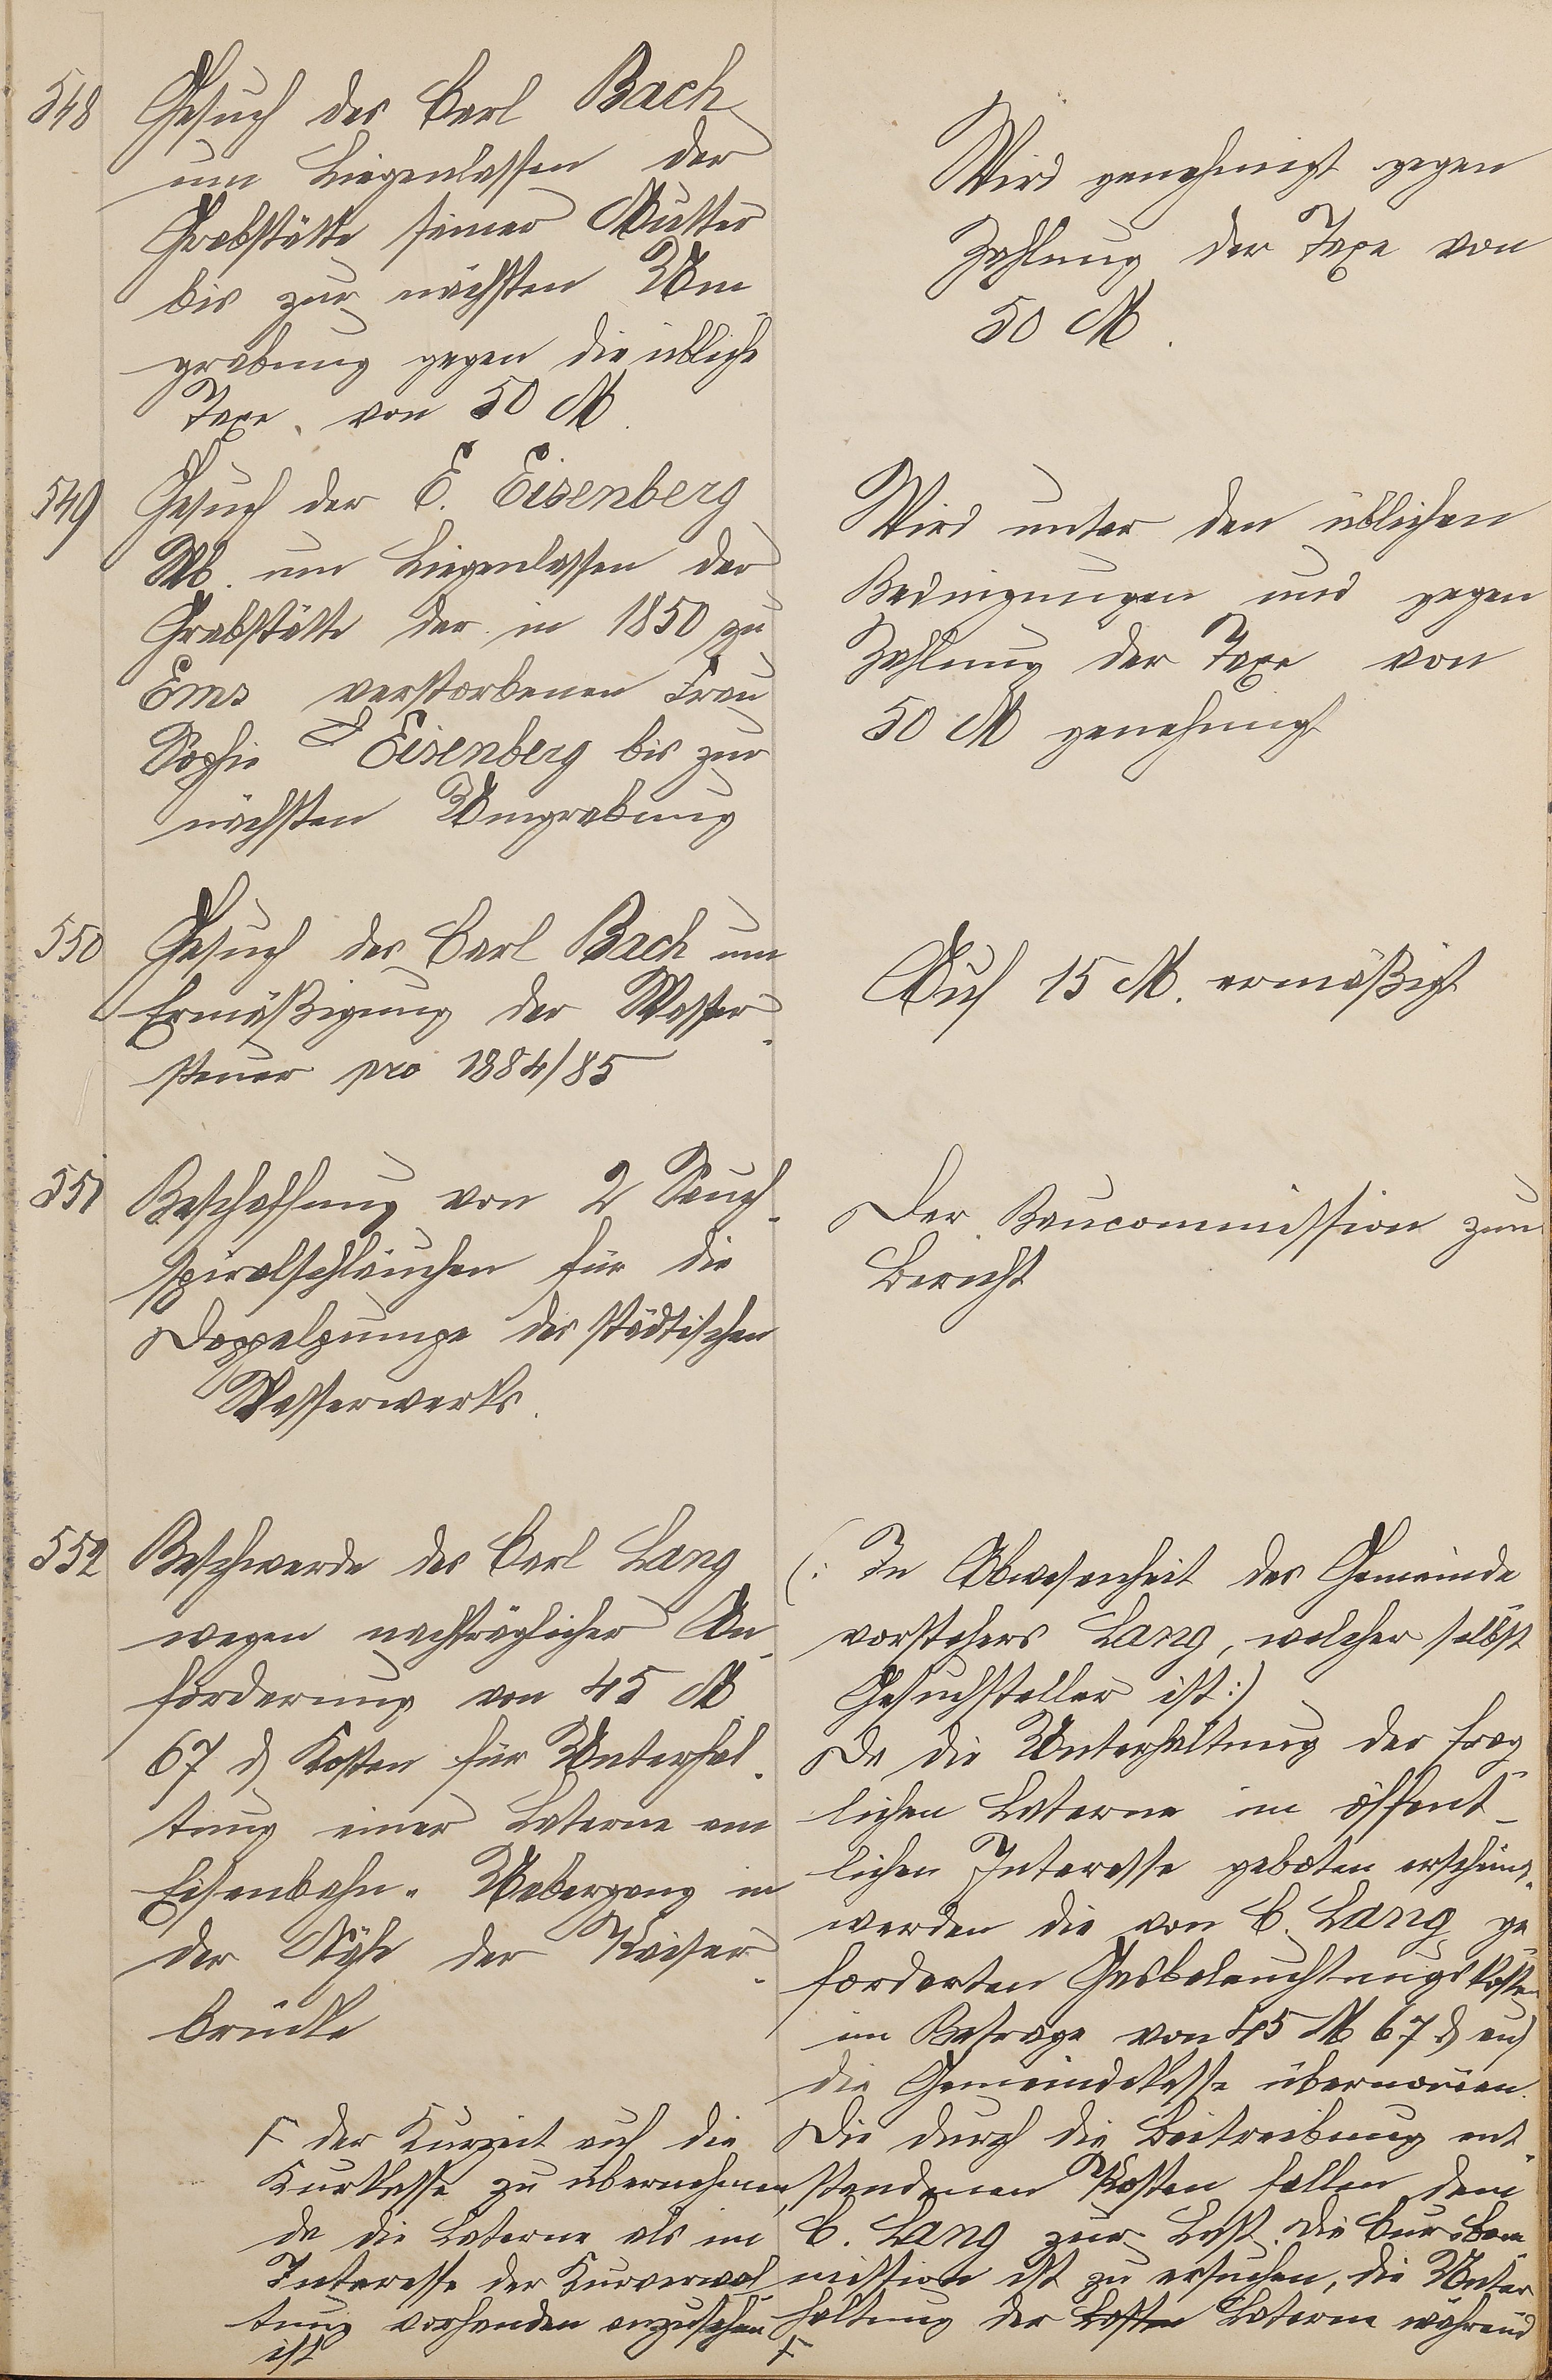 548
Gesuch des Carl Bach
um Liegenlassen der
Grabstätte seiner Mutter
bis zur nächsten Um-
grabung gegen die übliche
Taxe von 50 M.
Wird genehmigt gegen
Zahlung der Taxe von
50 M.
549
Gesuch der E. Eisenberg
um Liegenlassen der
Grabstätte der in 1850 zu
Ems verstorbenen Frau
Sophie Eisenberg bis zur
nächsten Umgrabung
Wird unter den üblichen
Bedingungen und gegen
Zahlung der Taxe von
50 M genehmigt
550
Gesuch des Carl Bach um
Ermäßigung der Wasser-
steuer pro 1884/85
Auf 15 M. ermäßigt
551
Beschaffung von 2 Saug-
spiralschläuchen für die
Doppelpumpe des städtischen
Wasserwerks.
Der Baucommission zum
Bericht
552
Beschwerde des Carl Lang
wegen nachträglicher An-
forderung von 45 M
67 ₰ Kosten für Unterhal-
tung einer Laterne am
Eisenbahn-Uebergang in
der Nähe der Kaiser-
brücke
(: In Abwesenheit des Gemeinde
vorstehers Lang, welcher selbst
Gesuchsteller ist :)
Da die Unterhaltung der frag-
lichen Laterne im öffent-
lichen Interesse geboten erscheint,
werden die von C. Lang ge-
forderten Gasbeleuchtungskosten
im Betrage von 45 M 67 ₰ auf
die Gemeindekasse übernom̄en.
Die durch die Beitreibung ent-
standenen Kosten fallen dem
C. Lang zur Last. Die Cur-Com-
mission ist zu ersuchen, die Unter-
haltung der Laterne während
F
F der Kurzeit auf die
Kurkasse zu übernehmen,
da die Laterne als im
Interesse der Kurverwal-
tung vorhanden anzusehen
ist